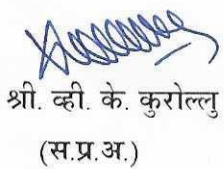 श्री. व्ही. के. कुरोल्लु
(स.प्र.अ.)